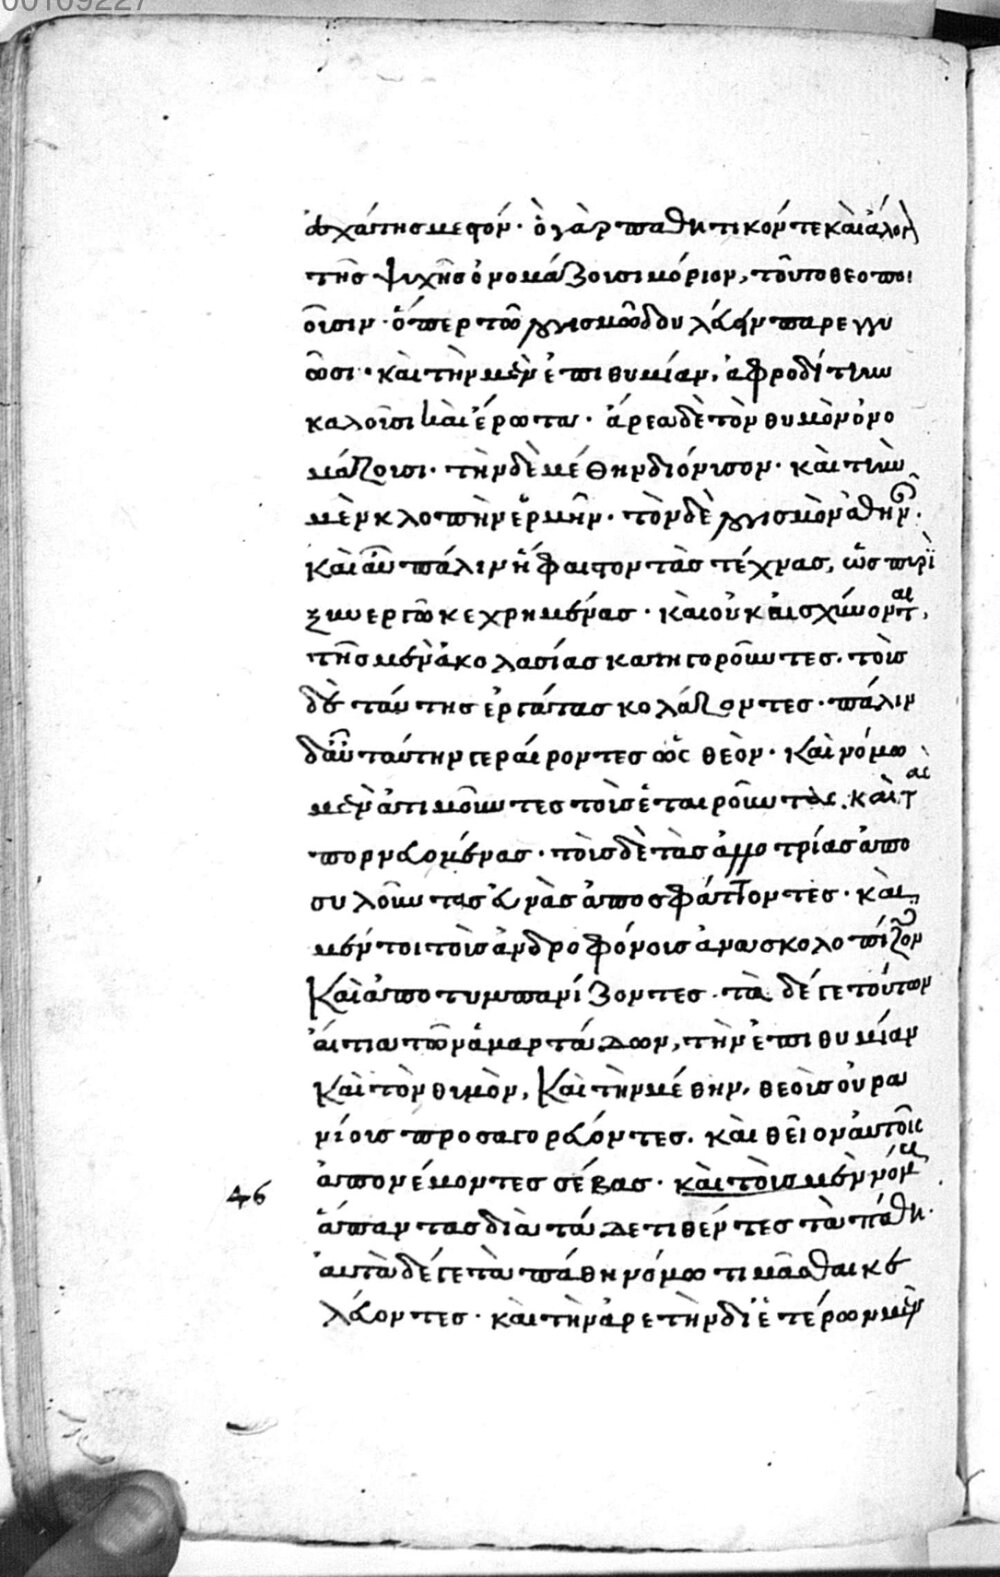 00109227
ἀχάτης μεστόν· ὃ γὰρ παθητικόν τε καὶ ἄλογ
τῆς ψυχῆς ὀνομάζουσι μόριον, τοῦτο θεοποι
οῦσιν· ὅπερ τῶ λογισμῶ δουλεύειν παρεγγυ
ῶσι· καὶ τὴν μὲν ἐπιθυμίαν, ἀφροδίτην
καλοῦσι καὶ ἔρωτα· ἄρεα δὲ τὸν θυμὸν ὀνο
μάζουσι· τὴν δὲ μέθην διόνυσον· καὶ τὴν
μὲν κλοπὴν ἑρμῆν· τὸν δὲ λογισμὸν ἀθην·
καὶ αὖ πάλιν ἥφαιστον τὰς τέχνας, ὡς πυρὶ
ξυνεργῶ κεχρημένας· καὶ οὐκ αἰσχύνονται,
τῆς μὲν ἀκολασίας κατηγοροῦντες· τοὺς
δὲ ταύτης ἐργάτας κολάζοντες· πάλιν
δ' αὖ ταύτην γεραίροντες ὡς θεόν· καὶ νόμω
μὲν ἀτιμοῦντες τοὺς ἑταιροῦντας· καὶ τὰς
πορνευομένας· τοὺς δὲ τὰς ἀλλοτρίας ἀπο
συλοῦντας εὐνὰς ἀποσφάττοντες· καὶ
μέντοι τοὺς ἀνδροφόνους ἀνασκολοπίζον
καὶ ἀποτυμπανίζοντες· τὰ δέ γε τούτων
αἴτια τῶν ἁμαρτάδων, τὴν ἐπιθυμίαν
καὶ τὸν θυμὸν, καὶ τὴν μέθην, θεοὺς οὐρα
νίους προσαγορεύοντες· καὶ θεῖον αὐτοῖς
ἀπονέμοντες σέβας· καὶ τοὺς μὲν νόμους
46
ἅπαντας διὰ τάδε τιθέντες τὰ πάθη·
αὐτὰ δέ γε τὰ πάθη νόμω τιμᾶσθαι κε
λεύοντες· καὶ τὴν ἀρετὴν δι' ἑτέρων μὲν